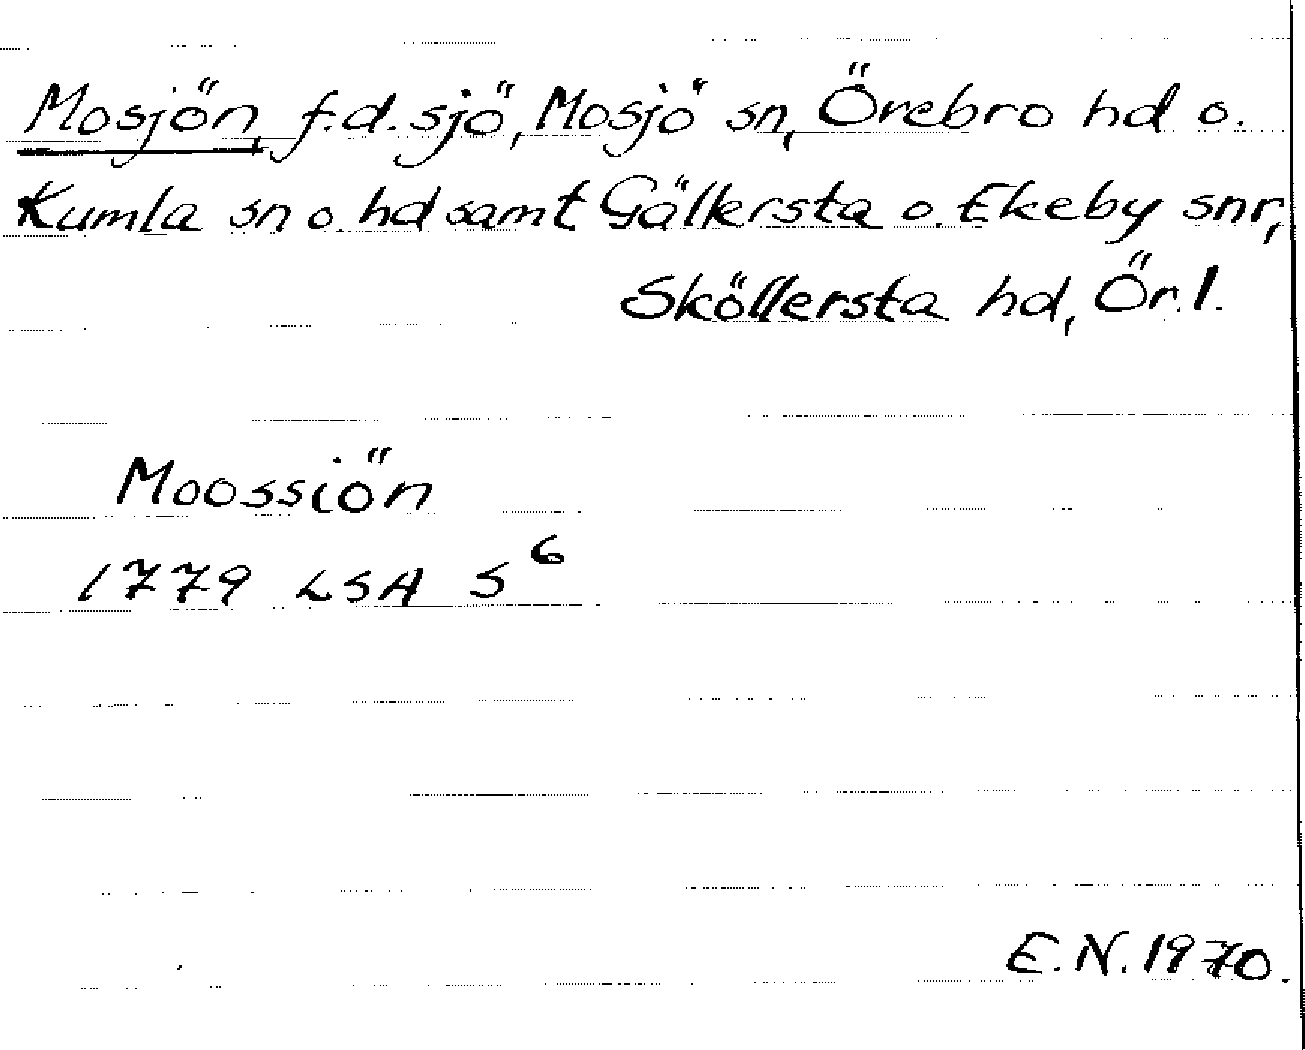 Mosjön, f.d. sjö, Mosjö sn, Örebro hd o.
Kumla sn o. hd samt Gällersta o. Ekeby snr,
Sköllersta hd, Ör. l.
Moossiön
1779 LSA S 6
E.N. 1970.